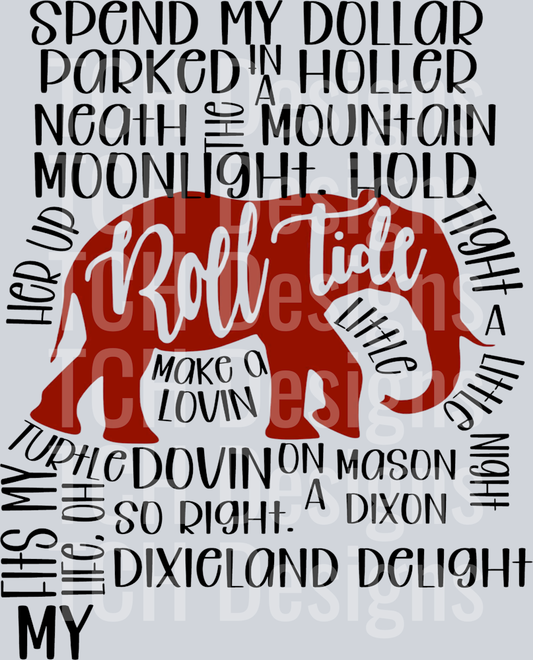 SPEND MY DOLLAR
PARKED IN A HOLLER
NEATH THE MOUNTAIN
MOONLIGHT. HOLD
HER UP
TIGHT
Roll Tide
A
LITTLE
LITTLE
MAKE A
LOVIN
NIGHT
TURTLE DOVIN ON A MASON
DIXON
FITS MY
LIFE, OH
SO RIGHT.
DIXIELAND DELIGHT
MY
TCH Designs
TCH Designs
TCH Designs
TCH Designs
TCH Designs
TCH Designs
TCH Designs